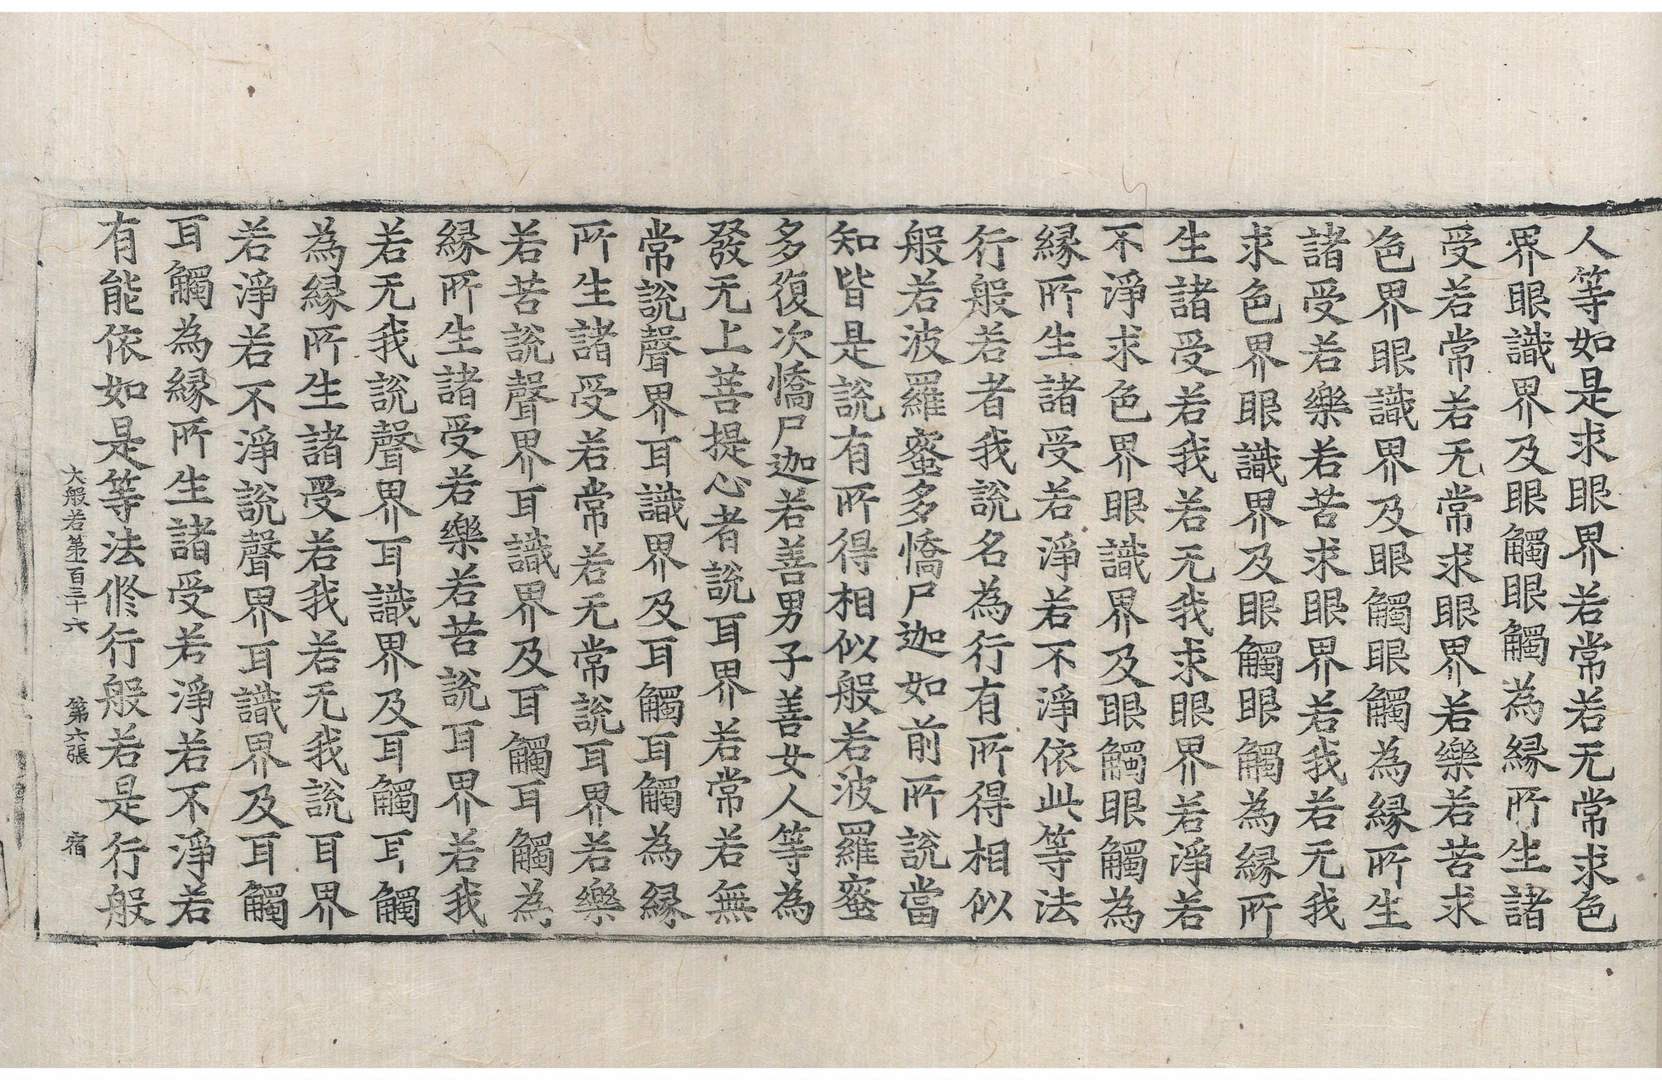 人等如是求眼界若常若无常求色
界眼識界及眼觸眼觸為縁所生諸
受若常若无常求眼界若樂若苦求
色界眼識界及眼觸眼觸為縁所生
諸受若樂若苦求眼界若我若无我
求色界眼識界及眼觸眼觸為縁所
生諸受若我若无我求眼界若淨若
不淨求色界眼識界及眼觸眼觸為
縁所生諸受若淨若不淨依此等法
行般若者我說名為行有所得相似
般若波羅蜜多憍尸迦如前所說當
知皆是說有所得相似般若波羅蜜
多復次憍尸迦若善男子善女人等為
發无上菩提心者說耳界若常若無
常說聲界耳識界及耳觸耳觸為縁
所生諸受若常若无常說耳界若樂
若苦說聲界耳識界及耳觸耳觸為
縁所生諸受若樂若苦說耳界若我
若无我說聲界耳識界及耳觸耳觸
為縁所生諸受若我若无我說耳界
若淨若不淨說聲界耳識界及耳觸
耳觸為縁所生諸受若淨若不淨若
有能依如是等法修行般若是行般
大般若第一百三十六 第六張 宿